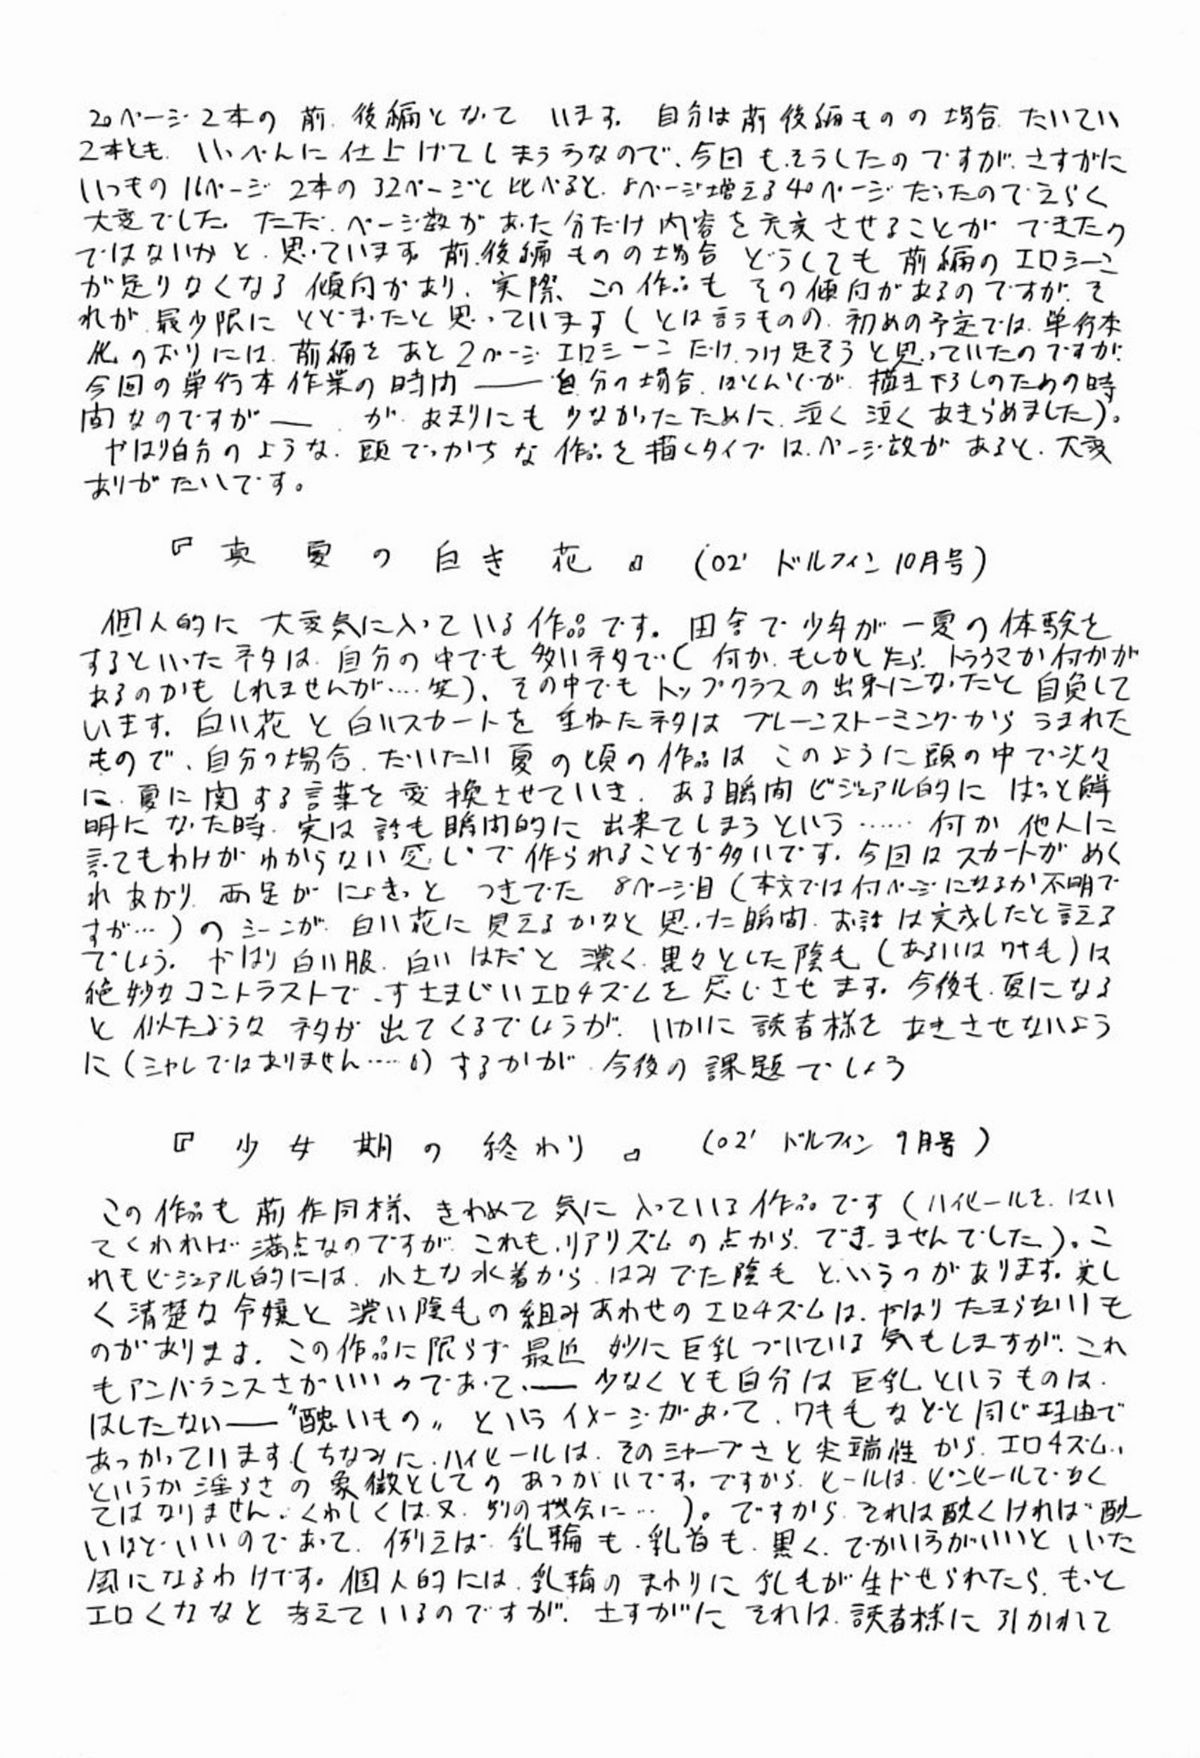 20ページ2本の前、後編となっています。自分は前後編ものの場合、たいてい
2本とも、いっぺんに仕上げてしまうなので、今回もそうしたのですが、さすがに
いつもの16ページ2本の32ページと比べると、8ページ増える40ページだったのでえらく
大変でした。ただ、ページ数があった分だけ内容を充実させることができたの
ではないかと、思っています。前、後編ものの場合どうしても前編のエロシーン
が足りなくなる傾向があり、実際、この作品もその傾向があるのですが、そ
れが、最少限にとどまったと思っています(とは言うものの、初めの予定では、単行本
化のおりには、前編をあと2ページエロシーンだけ、つけ足そうと思っていたのですが、
今回の単行本作業の時間――自分の場合、ほとんどが、描き下ろしのための時
間なのですが――が、あまりにも少なかったために、泣く泣くあきらめました)。
やはり自分のような、頭でっかちな作品を描くタイプは、ページ数があると、大変
ありがたいです。
『真夏の白き花』(02' ドルフィン10月号)
個人的に大変気に入っている作品です。田舎で少年が一夏の体験を
するといったネタは、自分の中でも多いネタで(何か、もしかしたら、トラウマか何かが
あるのかもしれませんが‥‥笑)、その中でもトップクラスの出来になったと自負して
います。白い花と白いスカートを重ねたネタはブレーンストーミングからうまれた
もので、自分の場合、だいたい夏の頃の作品はこのように頭の中で次々
に、夏に関する言葉を変換させていき、ある瞬間ビジュアル的にはっと鮮
明になった時、実は話も瞬間的に出来てしまうという……何か他人に
言ってもわけがわからない感じで作られることが多いです。今回はスカートがめく
れあがり、両足がにょきっとつきでた8ページ目(本文では何ページになるか不明で
すが…)のシーンが、白い花に見えるかなと思った瞬間、お話は完成したと言える
でしょう。やはり白い服、白いはだと濃く、黒々とした陰毛(あるいはワキ毛)は
絶妙なコントラストで、すさまじいエロチズムを感じさせます。今後も、夏になる
と似たようなネタが出てくるでしょうが、いかに読者様をあきさせないよう
に(シャレではありません……)するかが、今後の課題でしょう
『少女期の終わり』(02' ドルフィン9月号)
この作品も前作同様、きわめて気に入っている作品です(ハイヒールを、はい
てくれれば満点なのですが、これも、リアリズムの点から、できませんでした)。こ
れもビジュアル的には、小さな水着から、はみでた陰毛というのがあります。美し
く清楚な令嬢と濃い陰毛の組みあわせのエロチズムは、やはりたまらないも
のがあります。この作品に限らず最近妙に巨乳づいている気もしますが、これ
もアンバランスさがいいのであって、――少なくとも自分は巨乳というものは、
はしたない――〝醜いもの〟というイメージがあって、ワキ毛などと同じ理由で
あつかっています(ちなみに、ハイヒールは、そのシャープさと尖端性から、エロチズム、
というか淫らさの象徴としてのあつかいです。ですから、ヒールは、ピンヒールでなく
てはなりません。くわしくは又、別の機会に…)。ですから、それは醜くければ醜
いほどいいのであって、例えば、乳輪も、乳首も、黒く、でかいほうがいいといった
風になるわけです。個人的には、乳輪のまわりに乳毛が生やせられたら、もっと
エロくなるなと考えているのですが、さすがにそれは、読者様に引かれて